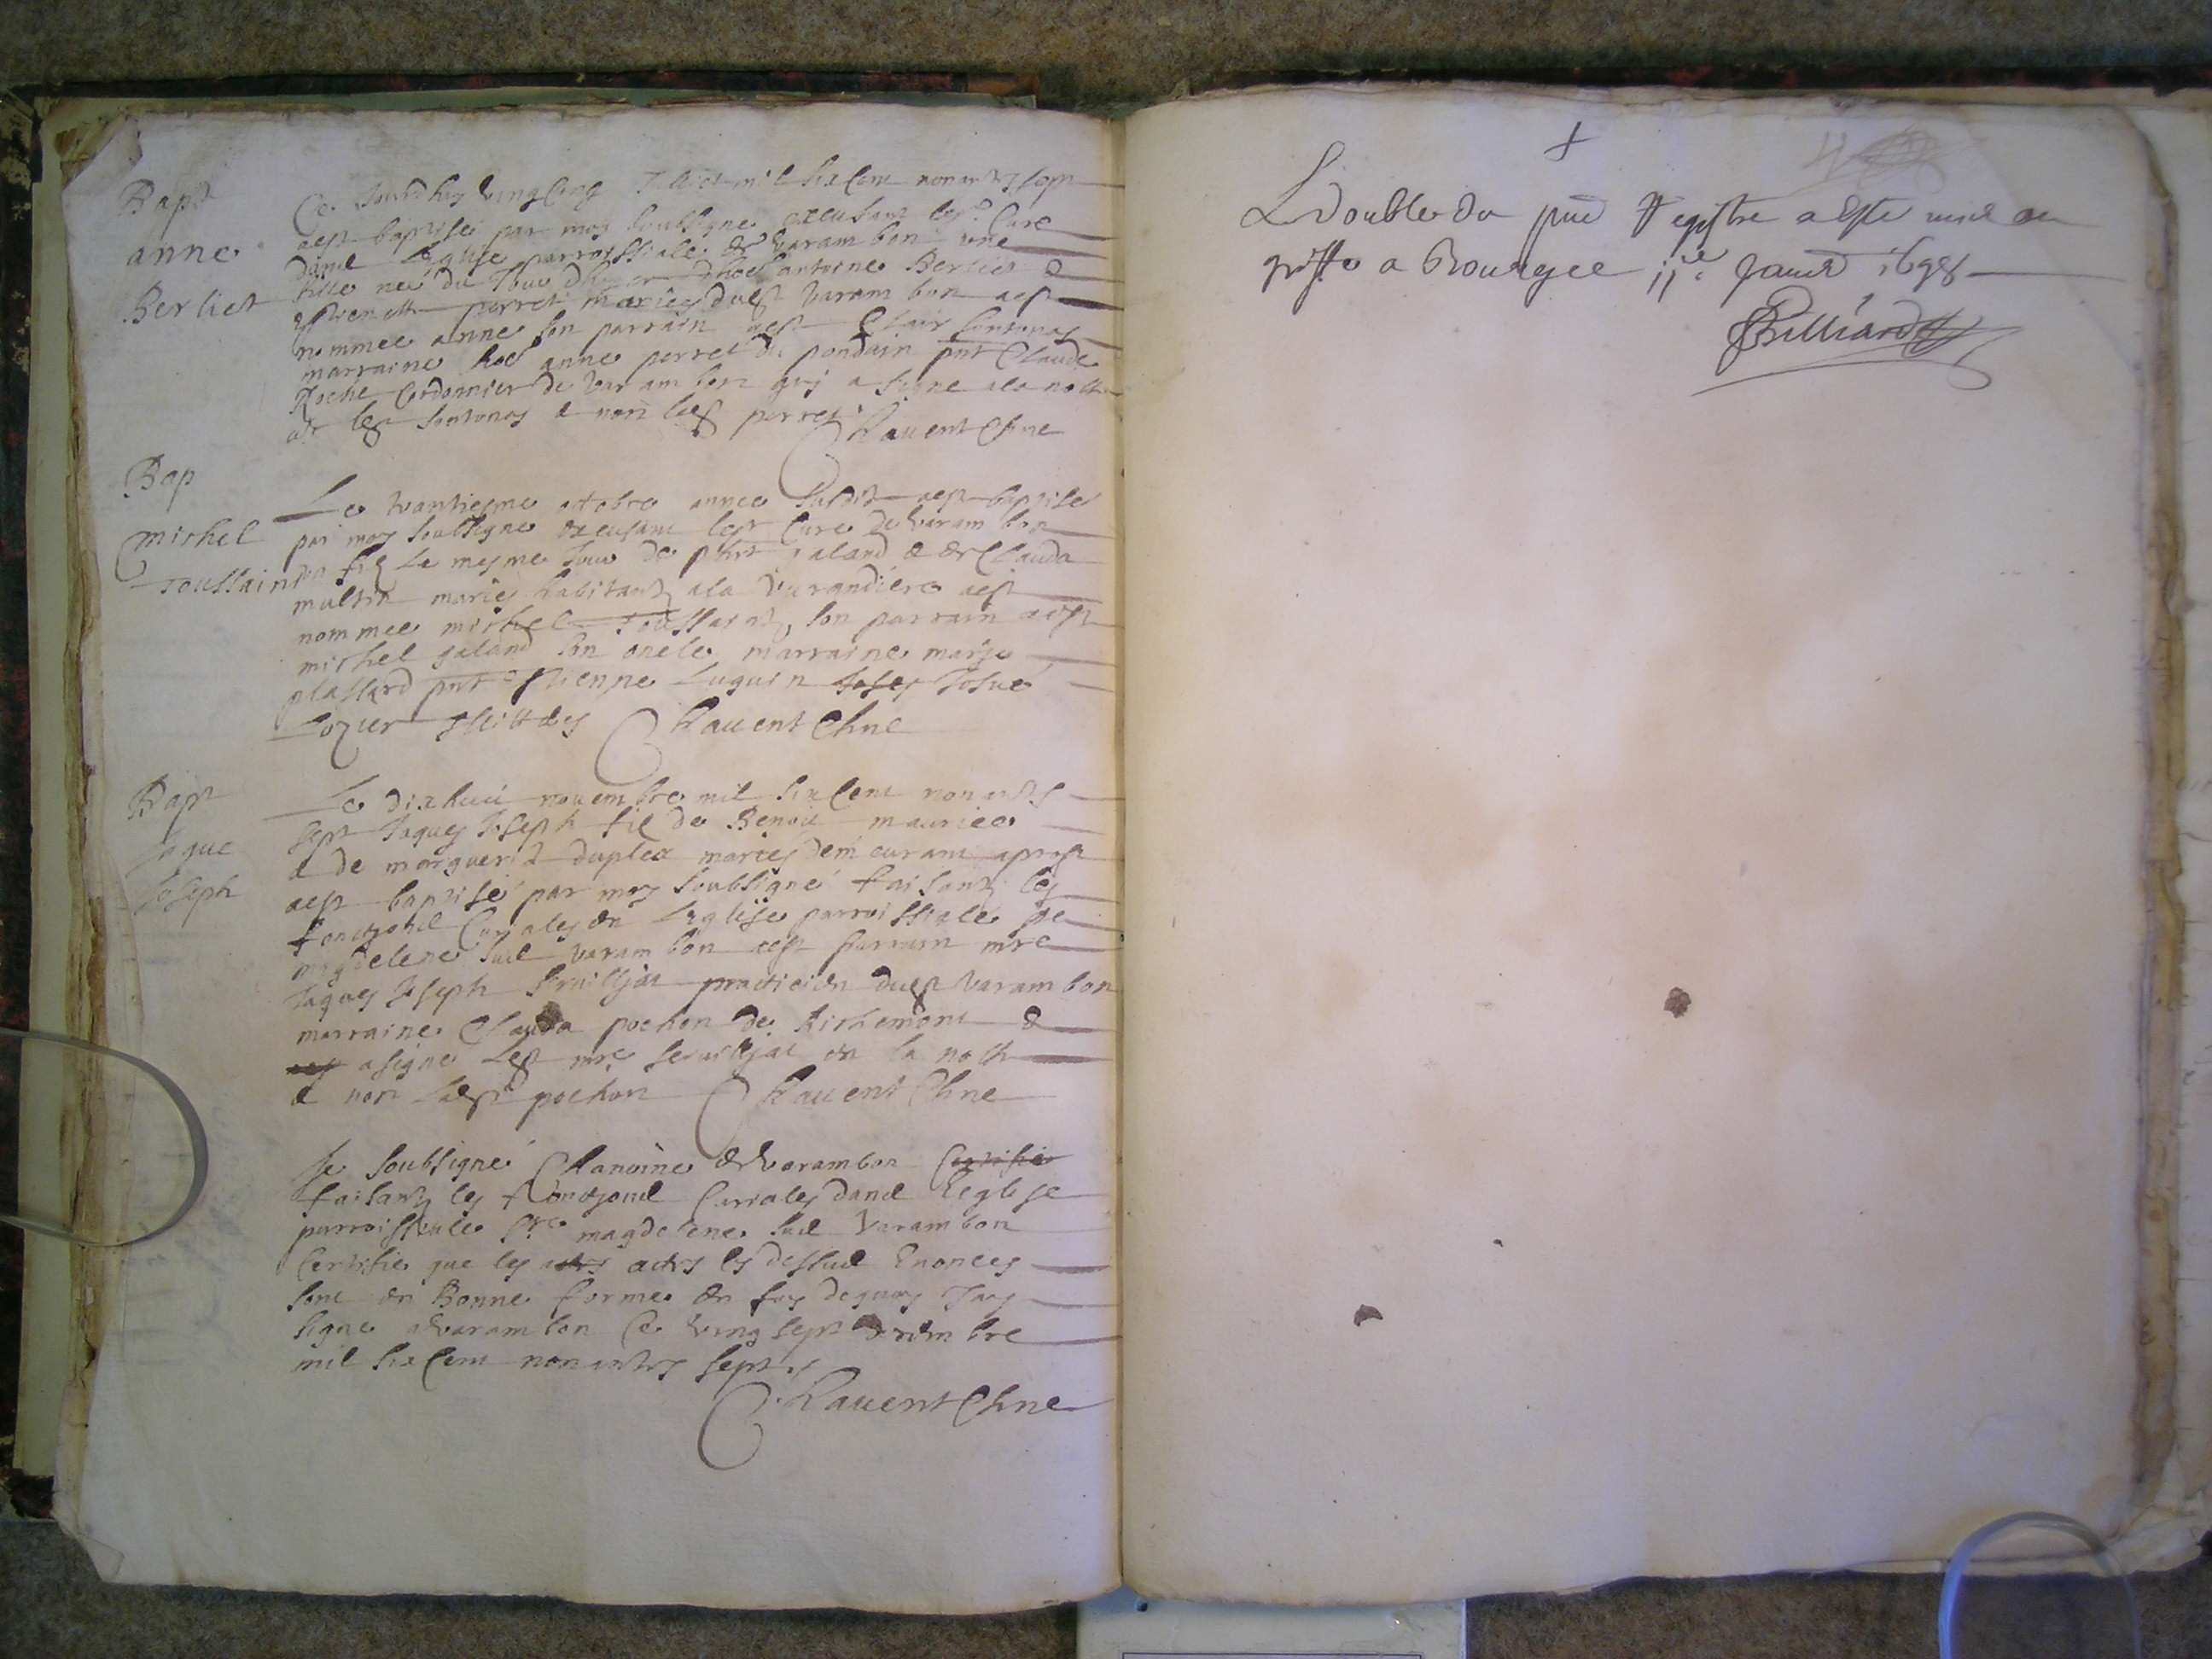 Bapt
anne
Berliet
Ce Jourdhuy vingt cinq Juliet mil six cent nonante sept
aest baptisé par moy soubsigné excusant Cure
dans Leglise parroissiale de varambon une
fille née du Jour dhier antoine Berliet &
perret mariés dudt varambon aest
nommee anne son parrain aest Clair
marraine anne perret du pondain pnt Claude
Roche Cordonnier de varambon qui a signe a la notte
& non perret
Ravent Chne
Bap
michel
Toussain
Le trantiesme octobre annee Susdit aest baptisé
par moy soubsigné excusant ledt Cure de varambon
un fiz le mesme Jour de galand & de Clauda
mariés habitants ala aest
nommee michel Toussaint, son parrain aest
michel galand son oncle marraine marie
plassard pnt Estienne Luguin Josué
Ravent Chne
Bapt
Jaque
Joseph
Le dixhuit novembre mil six cent nonante
sept Jaques Joseph fil de Benoit maurice
& de marguerit duplex mariés demeurant
aest baptisé par moy soubsigné faisant les
fonctions Curiales en Leglise parroissiale
magdelene sus varambon aest parrain mre
Jaques Joseph practicien dudt varambon
marraine Clauda pochon de Richemont &
a signe Ledt mre en la notte
& non Ladt pochon Ravent Chne
Je soubsigné Chanoine de varambon Certifie
faisant les fonctions Curiales dans Leglise
parroissiale Ste magdelene sus varambon
Certifie que les actes actes cy dessus Enonces
sont en Bonne forme en foy dequoy Jay
signe a varambon Ce vingt sept
mil six cent nonante sept
Ravent Chne
+
Le double du pnt Registre a este mis au
greffe a Bourg ce ije Janvr 1698
Billiard